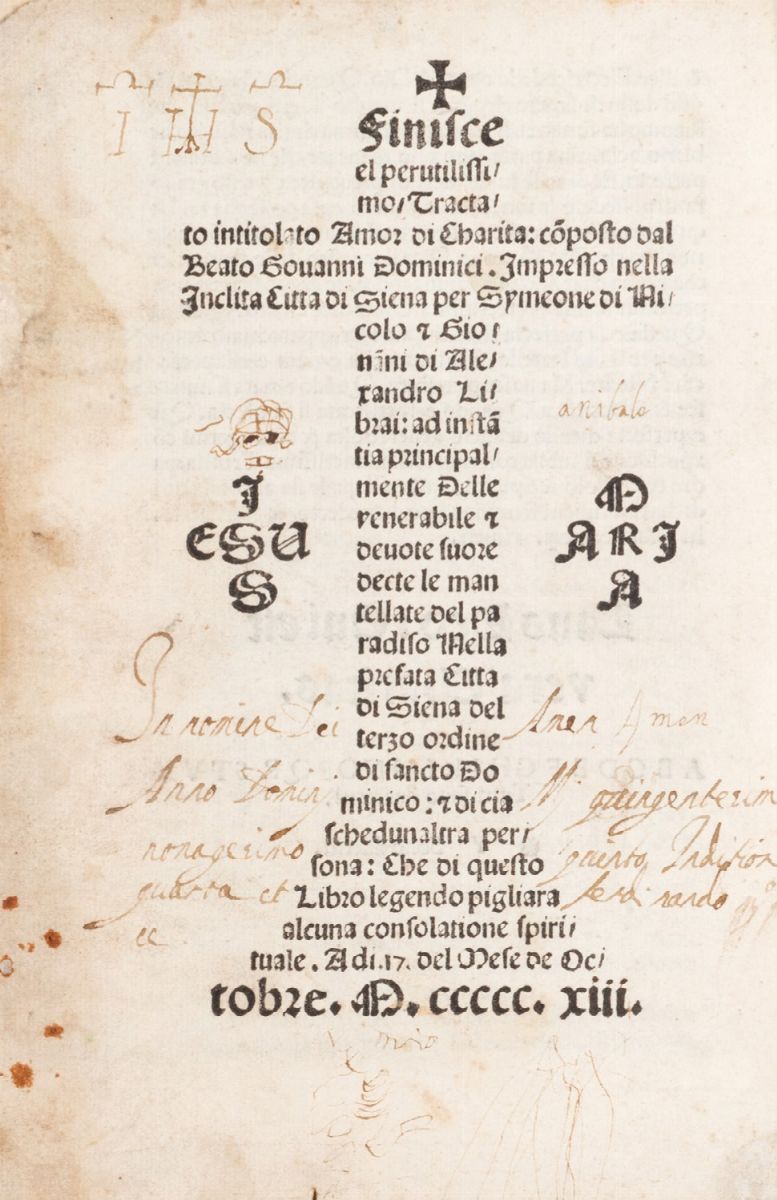 IHS
Finisce
el perutilissi/
mo/Tracta/
to intitolato Amor di Charita: cōposto dal
Beato Gouanni Dominici. Impresso nella
Inclita Citta di Siena per Symeone di Ni/
colo ⁊ Gio/
uāni di Ale/
xandro Li/
brai: ad instā
tia principal/
mente Delle
venerabile ⁊
deuote suore
decte le man
tellate del pa
radiso Nella
prefata Citta
di Siena del
terzo ordine
di sancto Do
minico: ⁊ di cia
schedunaltra per/
sona: Che di questo
Libro legendo pigliara
alcuna consolatione spiri/
tuale. Adi.17. del Mese de Oc/
tobre. M. ccccc. xiii.
J
ESU
S
M
ARI
A
anibale
In nomine Dei Amen Amen
Anno Domini M quingentesim
nonagesimo quinto Indition
quarta et ferdinando